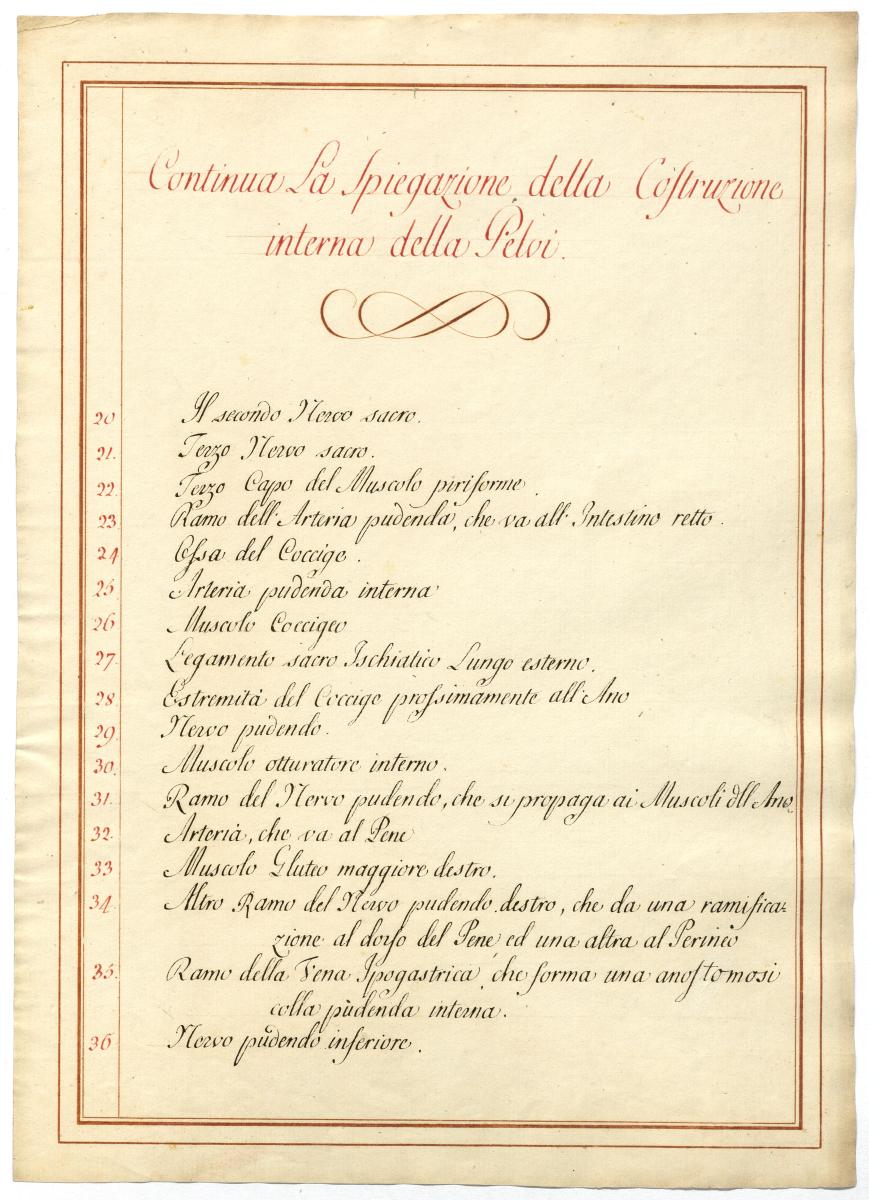 Continua La Spiegazione della Coſtruzione
interna della Pelvi.
20 Il secondo Nervo sacro.
21. Terzo Nervo sacro.
22. Terzo Capo del Muscolo piriforme.
23 Ramo dell'Arteria pudenda, che va all'Intestino retto.
24 Oſsa del Coccige.
25 Arteria pudenda interna
26 Muscolo Coccigeo
27. Legamento sacro Ischiatico Lungo esterno.
28 Estremità del Coccige proſsimamente all'Ano
29. Nervo pudendo.
30. Muscolo otturatore interno.
31. Ramo del Nervo pudendo, che si propaga ai Muscoli dll Ano.
32. Arteria, che va al Pene
33 Muscolo Gluteo maggiore destro.
34. Altro Ramo del Nervo pudendo destro, che da una ramifica=
zione al dorſo del Pene ed una altra al Perineo
35. Ramo della Vena Ipogastrica, che forma una anoſtomosi
colla pudenda interna.
36 Nervo pudendo inferiore.